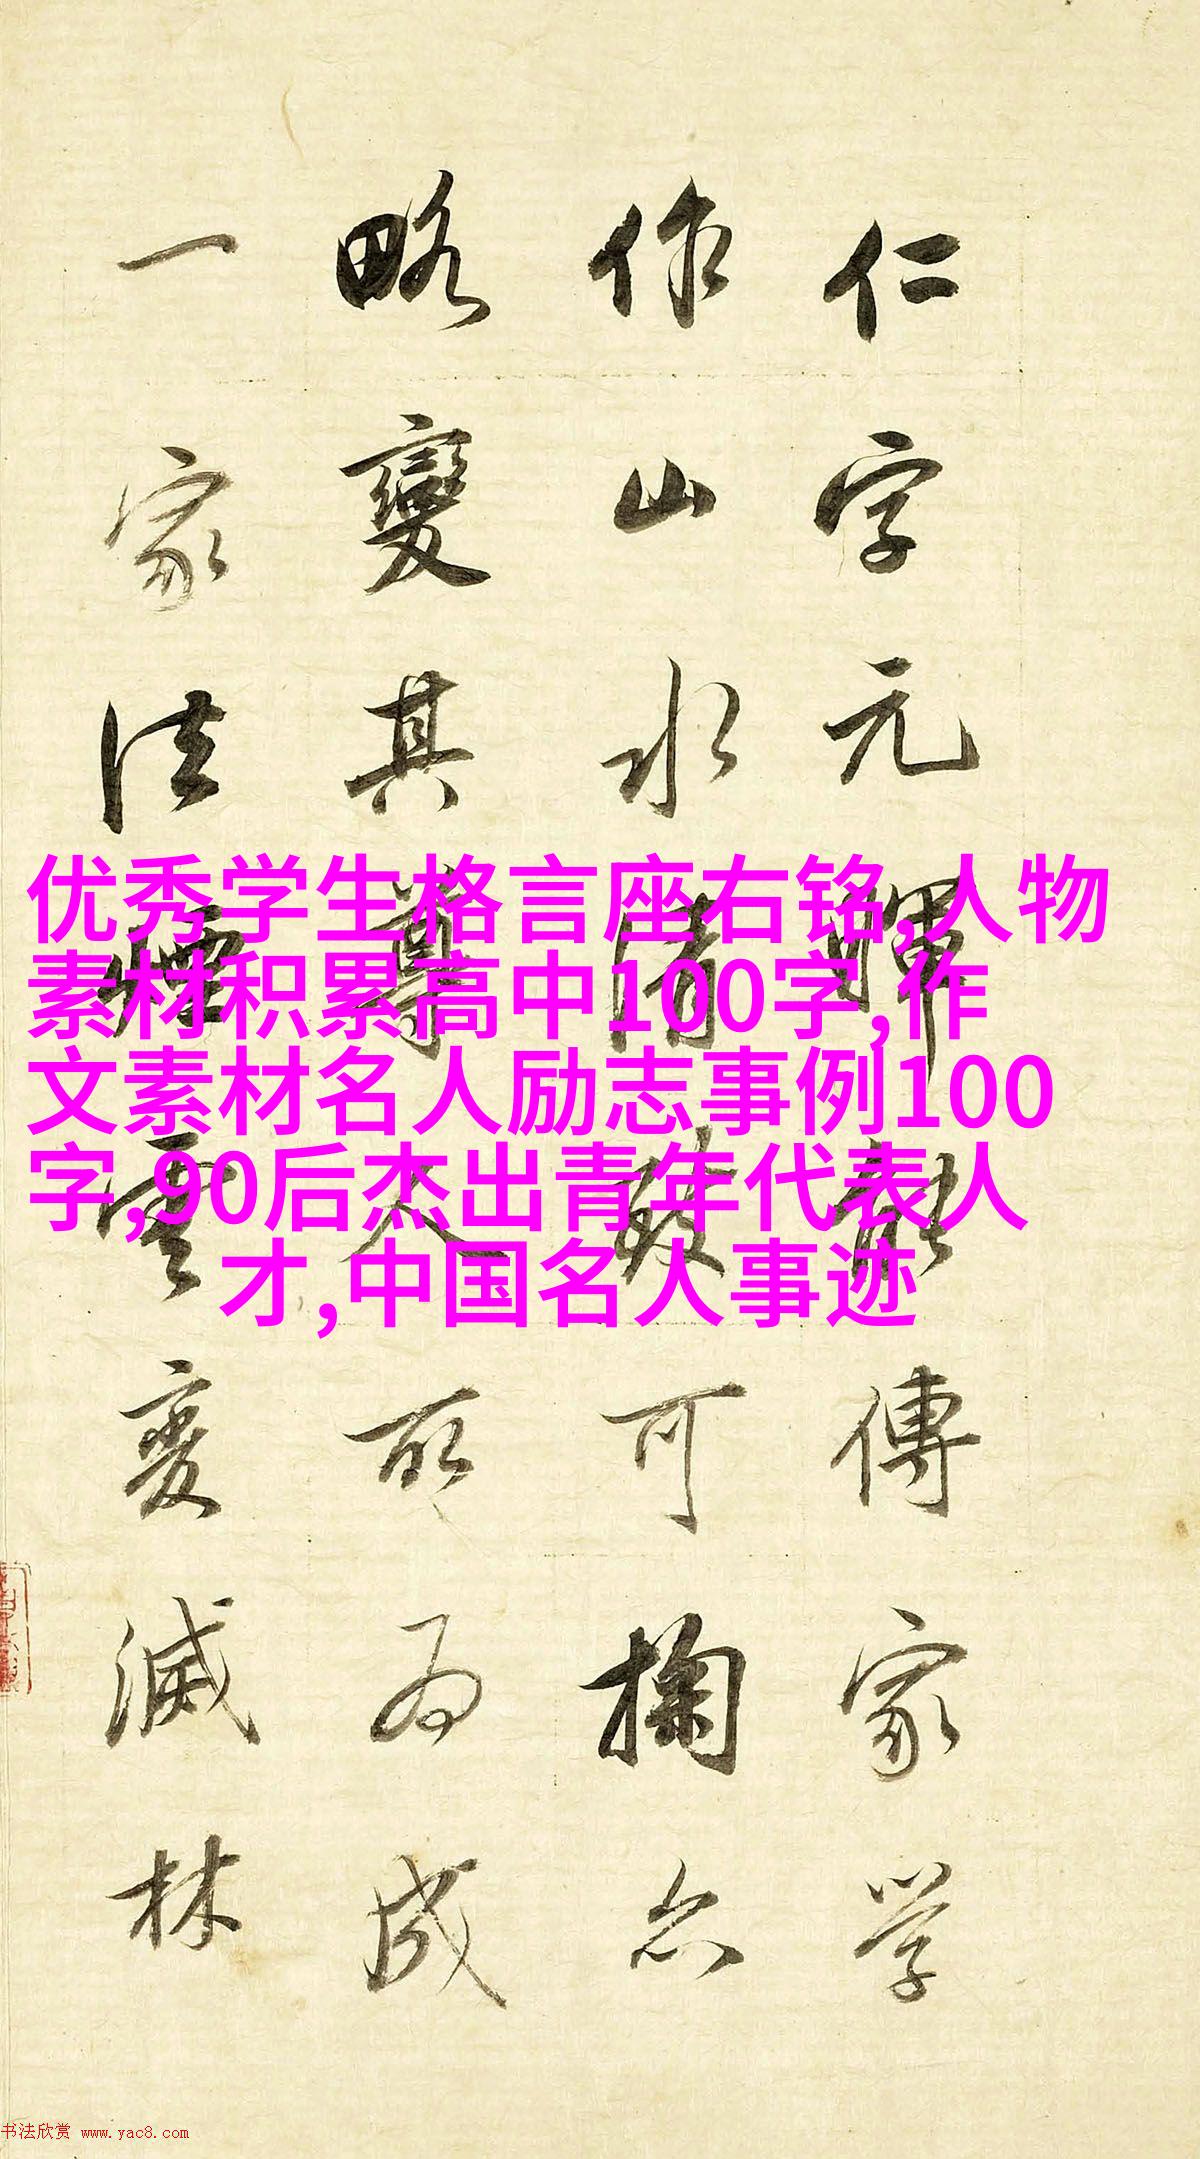 仁字元暉能傳家學
作山水清致可掬亦
略變其尊人所為成
一家法煙雲變滅林
优秀学生格言座右铭,人物
素材积累高中100字,作
文素材名人励志事例100
字,90后杰出青年代表人
才,中国名人事迹
书法欣赏 www.yac8.com